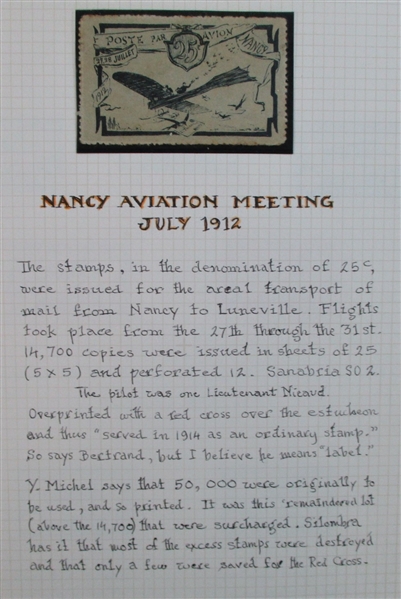 POSTE PAR AVION
25
NANCY
JUILLET
1912
NANCY AVIATION MEETING
JULY 1912
The stamps, in the denomination of 25c,
were issued for the areal transport of
mail from Nancy to Luneville. Flights
took place from the 27th through the 31st.
14,700 copies were issued in sheets of 25
(5 x 5) and perforated 12. Sanabria SO 2.
The pilot was one Lieutenant Nicaud.
Overprinted with a red cross over the escutcheon
and thus "served in 1914 as an ordinary stamp."
So says Bertrand, but I believe he means "label."
Y. Michel says that 50,000 were originally to
be used, and so printed. It was this remaindered lot
(above the 14,700) that were surcharged. Silombra
has it that most of the excess stamps were destroyed
and that only a few were saved for the Red Cross.